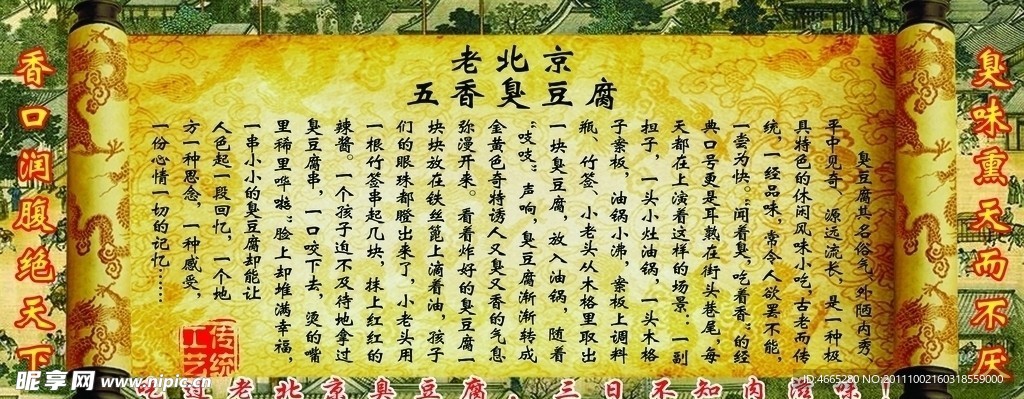 老北京
五香臭豆腐
臭豆腐其名俗气,外陋内秀,
平中见奇、源远流长,是一种极
具特色的休闲风味小吃,古老而传
统,一经品味,常令人欲罢不能,
一尝为快。“闻着臭,吃着香”的经
典口号更是耳熟在街头巷尾,每
天都在上演着这样的场景:一副
担子,一头小灶油锅,一头木格
子案板,油锅小沸,案板上调料
瓶、竹签、小老头从木格里取出
一块臭豆腐,放入油锅,随着
“吱吱”声响,臭豆腐渐渐转成
金黄色奇特诱人又臭又香的气息
弥漫开来。看着炸好的臭豆腐一
块块放在铁丝篦上滴着油,孩子
们的眼珠都瞪出来了,小老头用
一根竹签串起几块,抹上红红的
辣酱。一个孩子迫不及待地拿过
臭豆腐串,一口咬下去,烫的嘴
里稀里哗啦”脸上却堆满幸福,
一串小小的臭豆腐却能让
人色起一段回忆,一个地
方一种思念,一种感受,
一份心情一切的记忆……
传统
工艺
臭味熏天而不厌
香口润腹绝天下
吃过老北京臭豆腐、三日不知肉滋味!
昵享网 www.nipic.cn
ID:4665280 NO:20111002160318559000